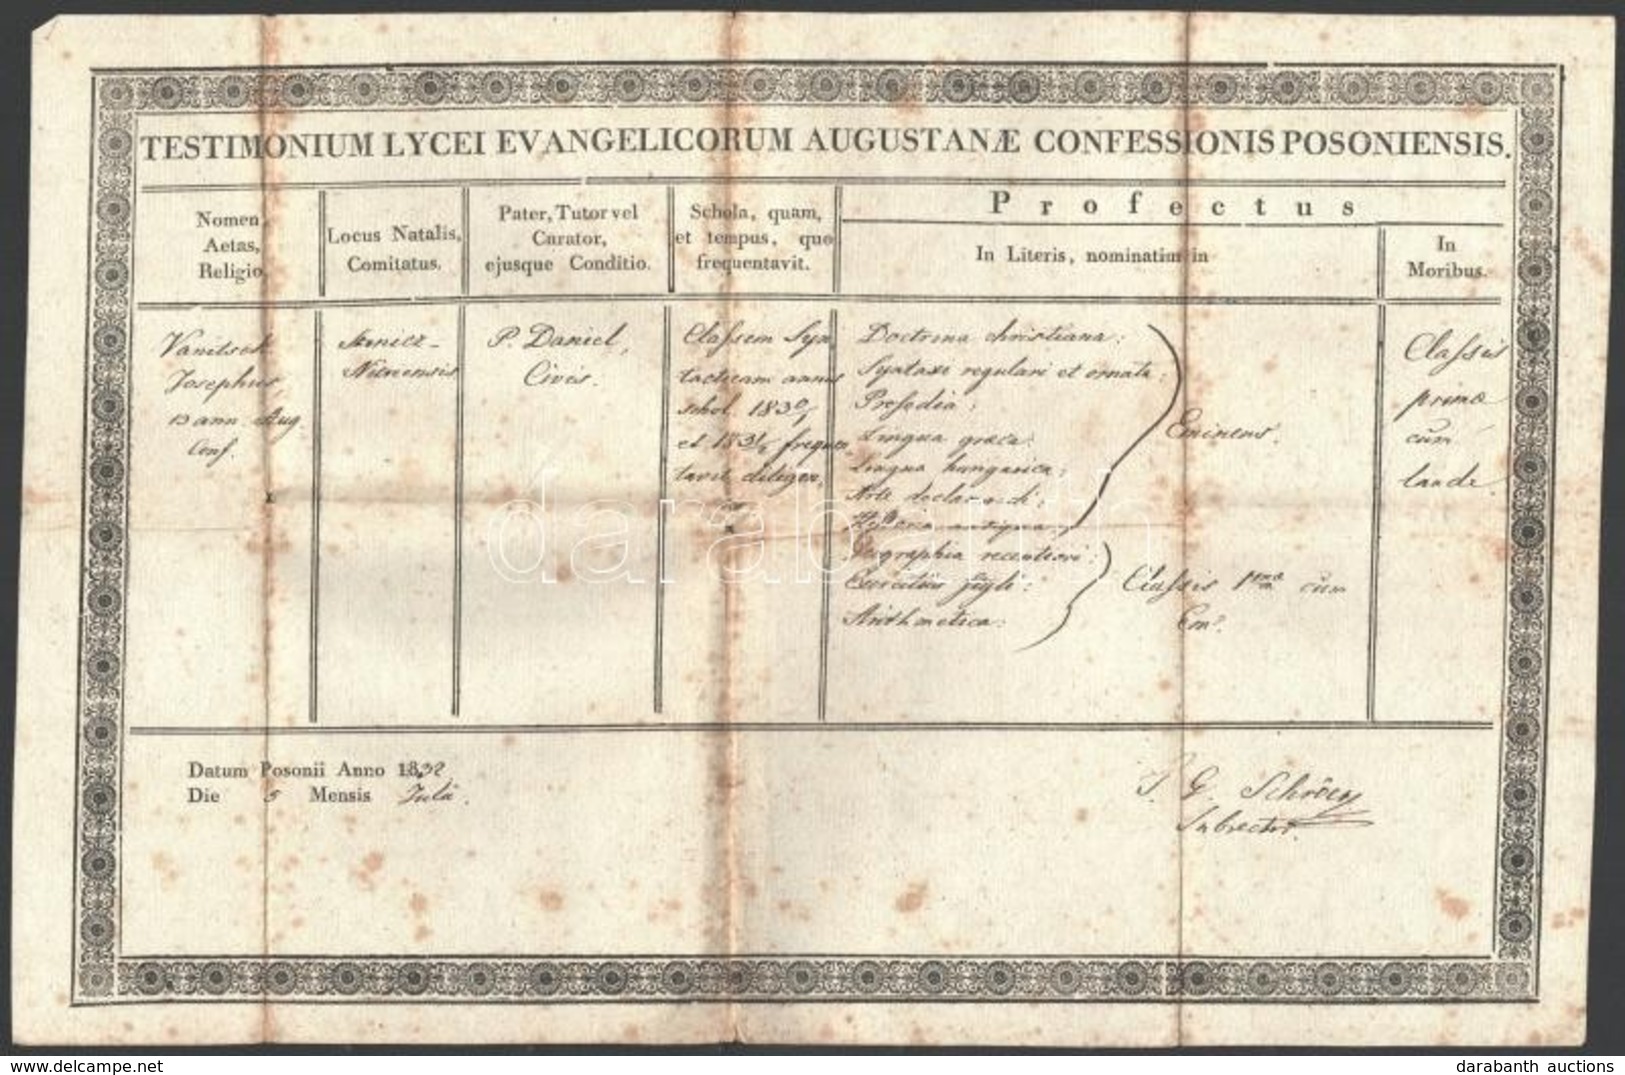 TESTIMONIUM LYCEI EVANGELICORUM AUGUSTANÆ CONFESSIONIS POSONIENSIS.
Nomen,
Aetas,
Religio.
Locus Natalis,
Comitatus.
Pater, Tutor vel
Curator,
ejusque Conditio.
Schola, quam,
et tempus, quo
frequentavit.
Profectus
In Literis, nominatim in
In
Moribus.
Josephus,
13 ann. Aug
Conf.
Nitriensis
P. Daniel,
Civis.
Classem Syn
tacticam annis
schol. 1830/1
et 1831/2 frequen
tavit diligen
ter
Doctrina christiana:
Syntaxi regulari et ornata:
Prosodia:
Lingua græca:
Lingua hungarica:
Arte declamandi:
Historia antiqua:
Geographia recentiori:
Exercitiis styli:
Arithmetica:
Eminens.
Classis 1mæ cum
Em?.
Classis
primæ
cum
laude.
Datum Posonii Anno 1832
Die 5 Mensis Julii.
G. Schröer
Subrector.
darabanth
darabanth auctions